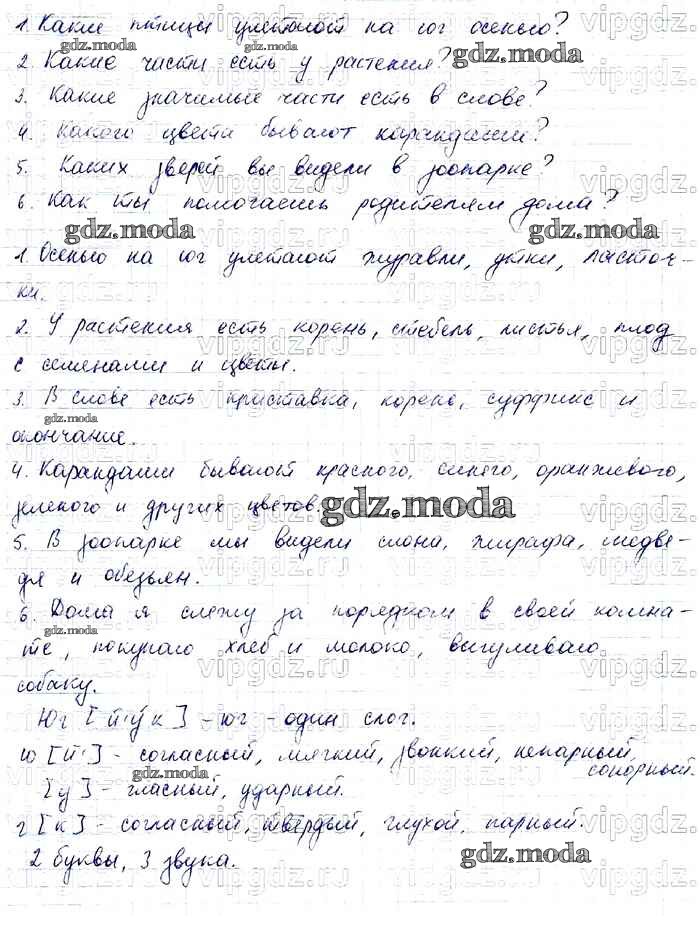 1. Какие птицы улетают на юг осенью?
2. Какие части есть у растения?
3. Какие значимые части есть в слове?
4. Какого цвета бывают карандаши?
5. Каких зверей вы видели в зоопарке?
6. Как ты помогаешь родителям дома?
1. Осенью на юг улетают журавли, утки, ласточ-
ки.
2. У растения есть корень, стебель, листья, плод
с семенами и цветы.
3. В слове есть приставка, корень, суффикс и
окончание.
4. Карандаши бывают красного, синего, оранжевого,
зеленого и других цветов.
5. В зоопарке мы видели слона, жирафа, медве-
дя и обезьян.
6. Дома я слежу за порядком в своей комна-
те, покупаю хлеб и молоко, выгуливаю
собаку.
Юг [й'у́к] - юг - один слог.
ю [й'] - согласный, мягкий, звонкий, непарный,
сонорный.
[у] - гласный, ударный.
г [к] - согласный, твёрдый, глухой, парный.
2 буквы, 3 звука.
gdz.moda
vipgdz.ru